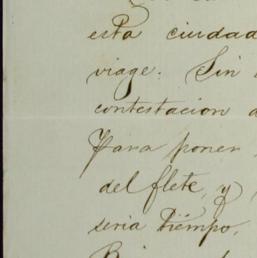 esta ciudad
viage. Sin
contestacion
Para poner
del flete, y
seria tiempo.